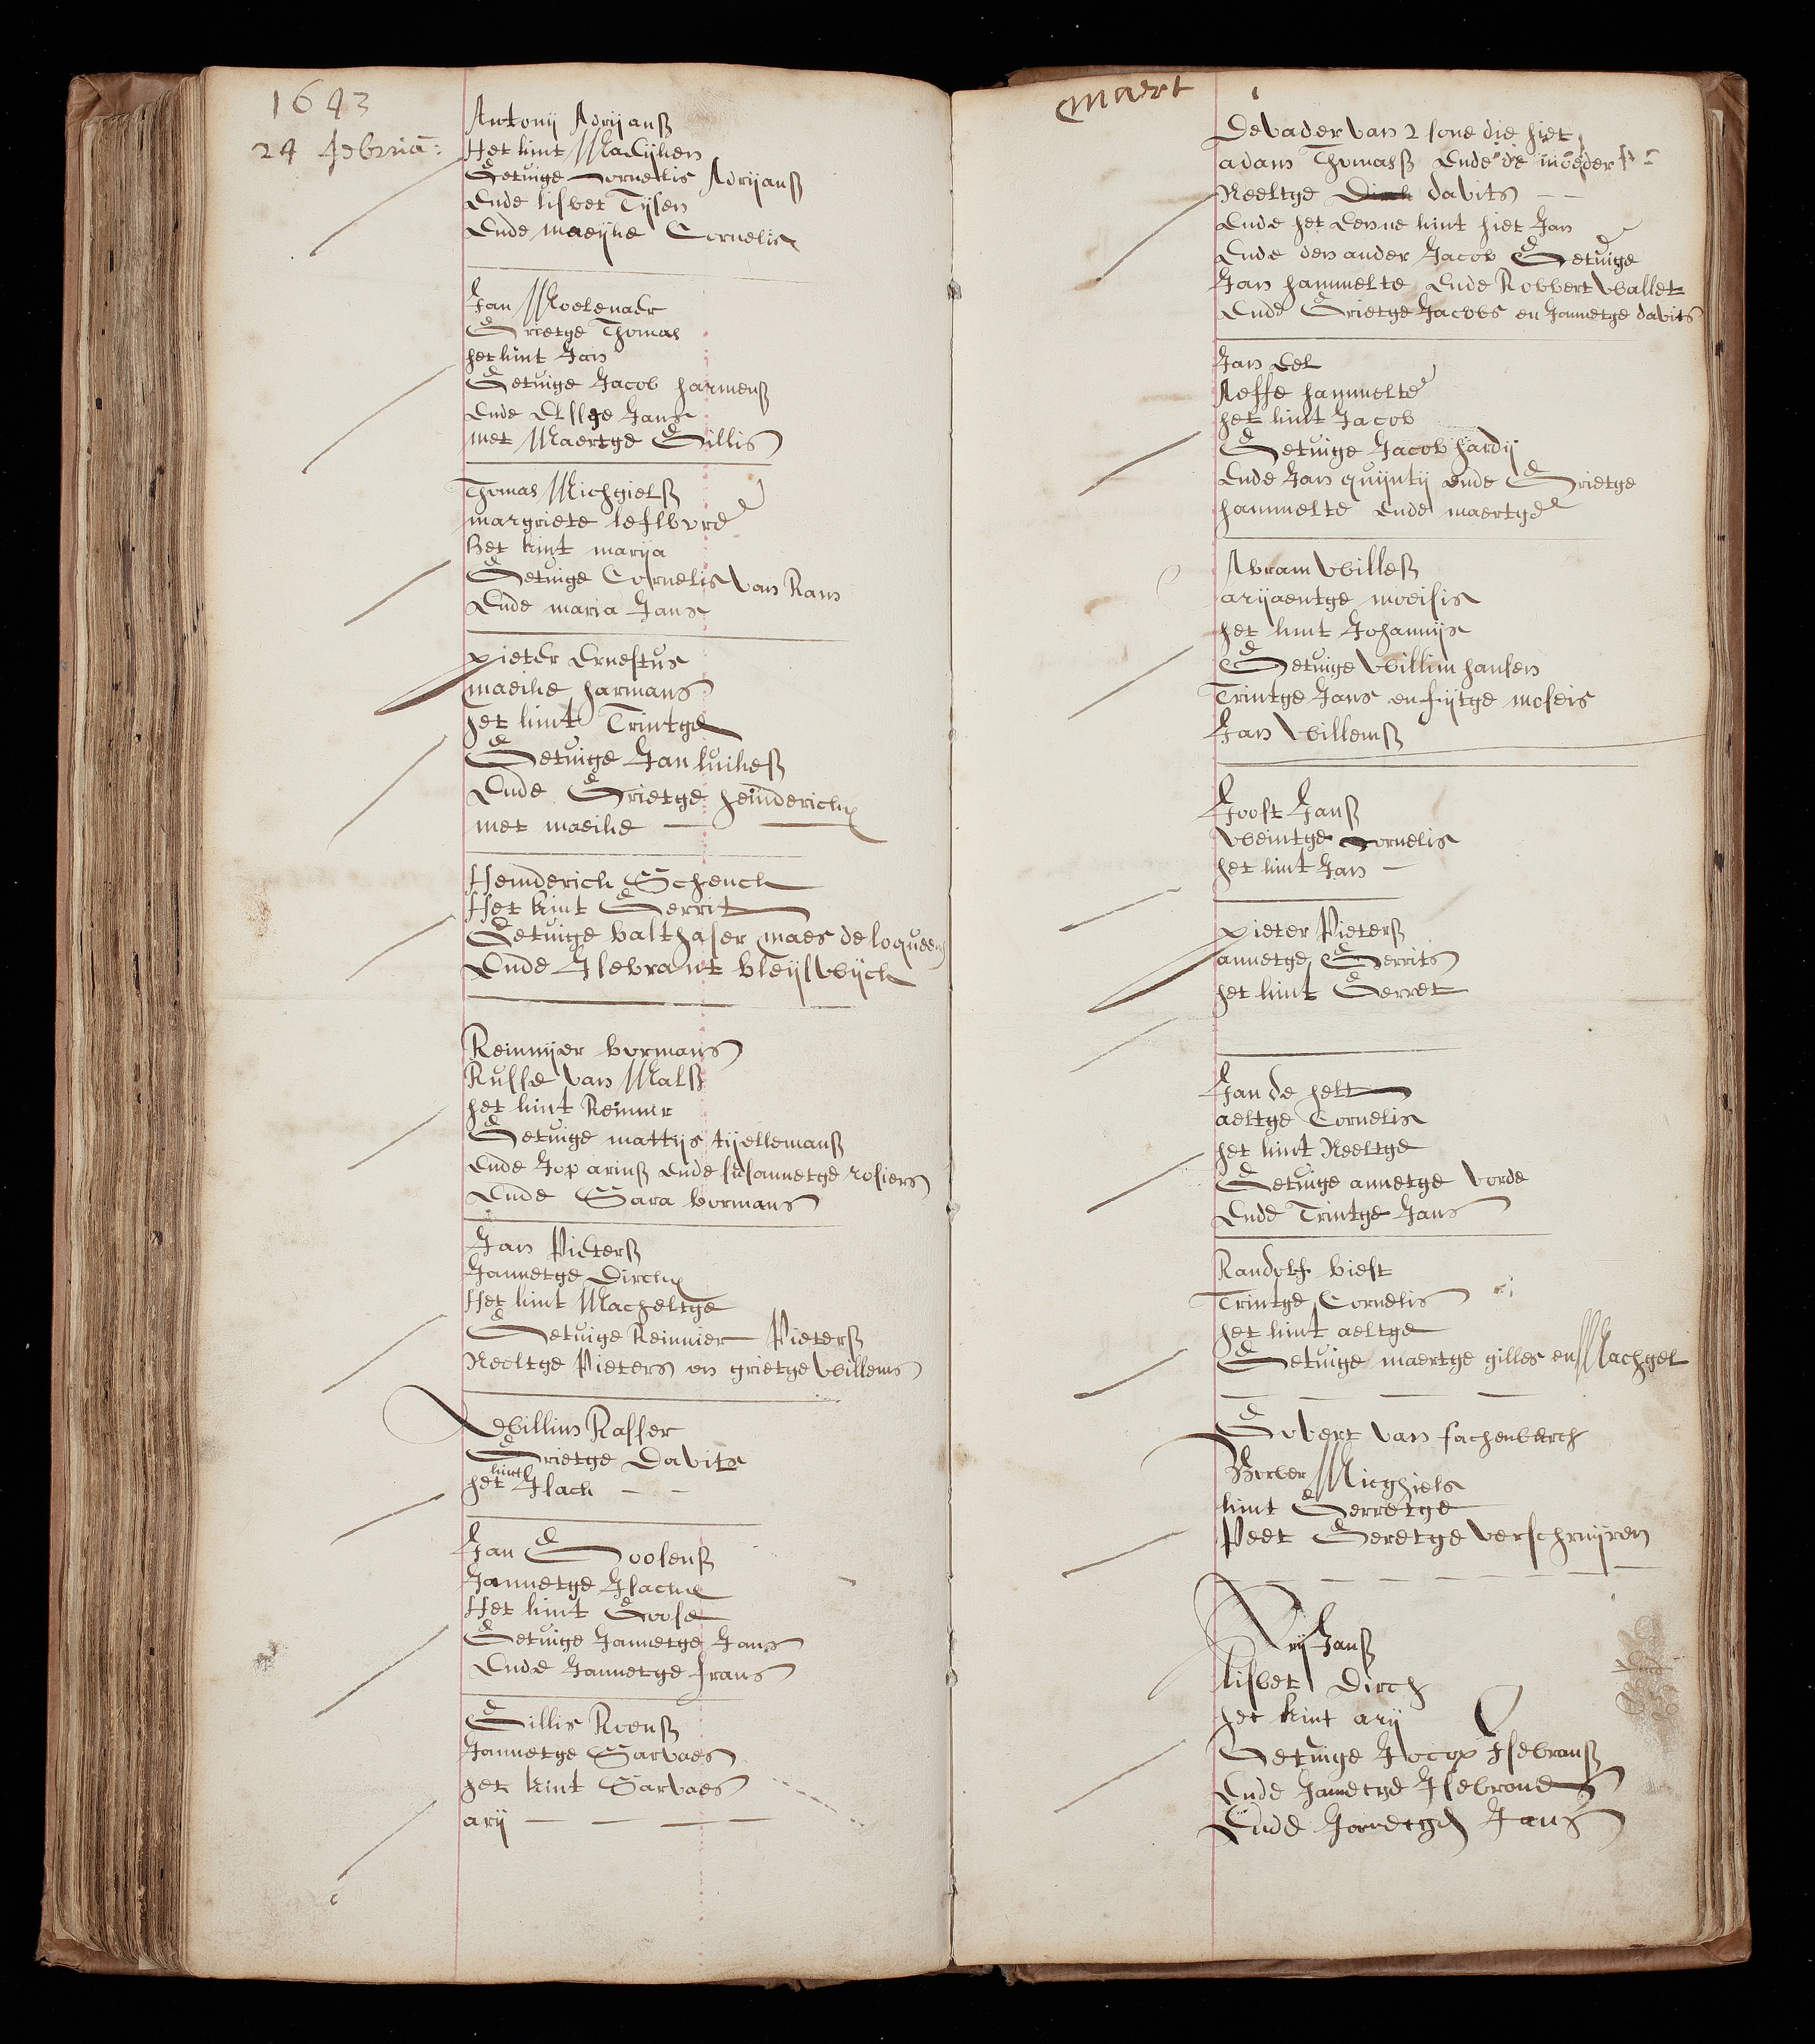 1643
24 februa:
Antonij Adrijansz
Het kint Maeijken
Getuige Cornellis Adrijansz
Ende lisbet Tijsen
Ende maeijke Cornelis
Jan Moelenaer
Grietge Thomas
het kint Jan
Getuige Jacob harmensz
Ende Elsge Jans
met Maertge Gillis
Thomas Michgielsz
margriete
Het kint marija
Getuige Cornelis van Ram
Ende maria Jans
pieter Ernestus
maeike harmans
het kint Trintge
Getuige Jan luikesz
Ende Grietge heinderickx
met maeike
Heinderick Schenck
Het kint Gerrit
Getuige balthaser maes de
Ende Isebrant bleijswijck
Reinnijer bormans
Russe van Malsz
het kint Reinnir
Getuige mattijs tijellemansz
Ende Jop arinsz Ende susannetge rosiers
Ende Sara bormans
Jan Pietersz
Jannetge Dirckx
Het kint Macheltge
Getuige Reinnier Pietersz
Neeltge Pieters en grietge Willems
Willim Kasser
Grietge Davits
het kint Isack
Jan Goosensz
Jannetge Isackx
Het kint Goose
Getuige Jannetge Jans
Ende Jannetge frans
Gillis Roensz
Jannetge Sarvaes
het kint Sarvaes
arij
maert 1
De vader van 2 sone die hiet
adam Thomasz Ende de moeder
Neeltge Dirck davits
Ende het Eenne kint hiet Jan
Ende den ander Jacob Getuige
Jan hammelte Ende Robbert Wallet
Ende Grietge Jacobs en Jannetge davits
Jan Eel
Aeffe hammelte
het kint Jacob
Getuige Jacob hardij
Ende Jan quijntij ende Grietge
hammelte Ende maertge
Abram Willesz
arijaentge moeisis
het kint Johannijs
Getuige Willim hansen
Trintge Jans en fijtge moseis
Jan Willemsz
Joost Jansz
Weintge Cornelis
het kint Jan
pieter Pietersz
annetge Gerrits
het kint Gerret
Jan de helt
aeltge Cornelis
het kint Neeltge
Getuige annetge vorde
Ende Trintge Jans
Randolf biest
Trintge Cornelis
het kint aeltge
Getuige maertge gilles en Machgel
Gobert van fachenberch
Berber Micghiels
kint Gerretge
Peet Geretge verschruijren
Arij Jansz
lisbet Dirch
het kint arij
Getuige Jocop Isebransz
Ende Jannetge Isebrons
Ende Jannetge Jans